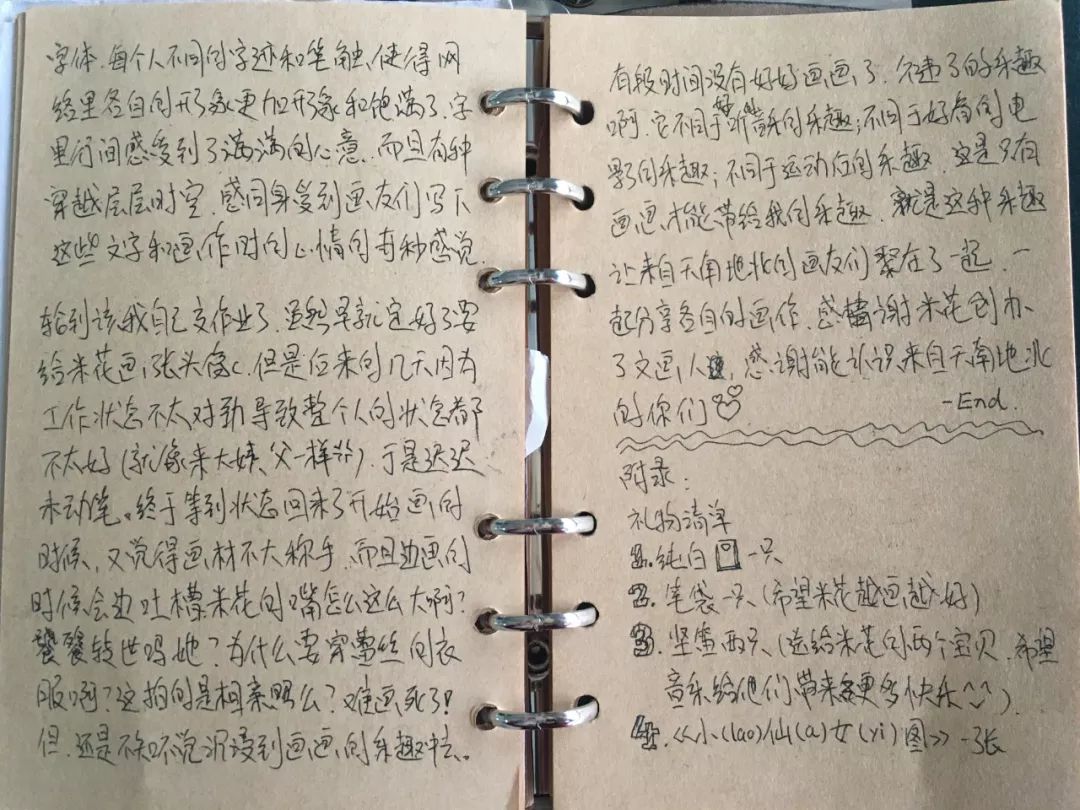 字体.每个人不同的字迹和笔触,使得网
络里各自的形象更加形象和饱满了.字
里行间感受到了满满的心意.而且有种
穿越层层时空.感同身受到画友们写下
这些文字和画作时的心情的奇妙感觉.
轮到该我自己交作业了.虽然早就定好了要
给米花画张头像.但是后来的几天因为
工作状态不太对劲导致整个人的状态都
不太好(就像来大姨父一样).于是迟迟
未动笔。终于等到状态回来了开始画的
时候、又觉得画材不大称手.而且边画的
时候会边吐槽米花的嘴怎么这么大啊?
饕餮转世吗她?为什么要穿蕾丝的衣
服啊?这拍的是相亲照么?难画死了!
但.还是不知不觉沉浸到画画的乐趣中去。
有段时间没有好好画画了.久违了的乐趣
啊.它不同于听音乐的乐趣;不同于好看的电
影的乐趣;不同于运动后的乐趣.这是只有
画画才能带给我的乐趣.就是这种乐趣
让来自天南地北的画友们聚在了一起.一
起分享各自的画作.感谢米花创办
了文画人.感谢能认识来自天南地北
的你们♡ -End.
附录:
礼物清单
1.纯白 一只
2.笔袋一只(希望米花越画越好)
3.竖笛两只(送给米花的两个宝贝.希望
音乐给他们带来更多快乐^^).
4.《小(lao)仙(a)女(yi)图》一张